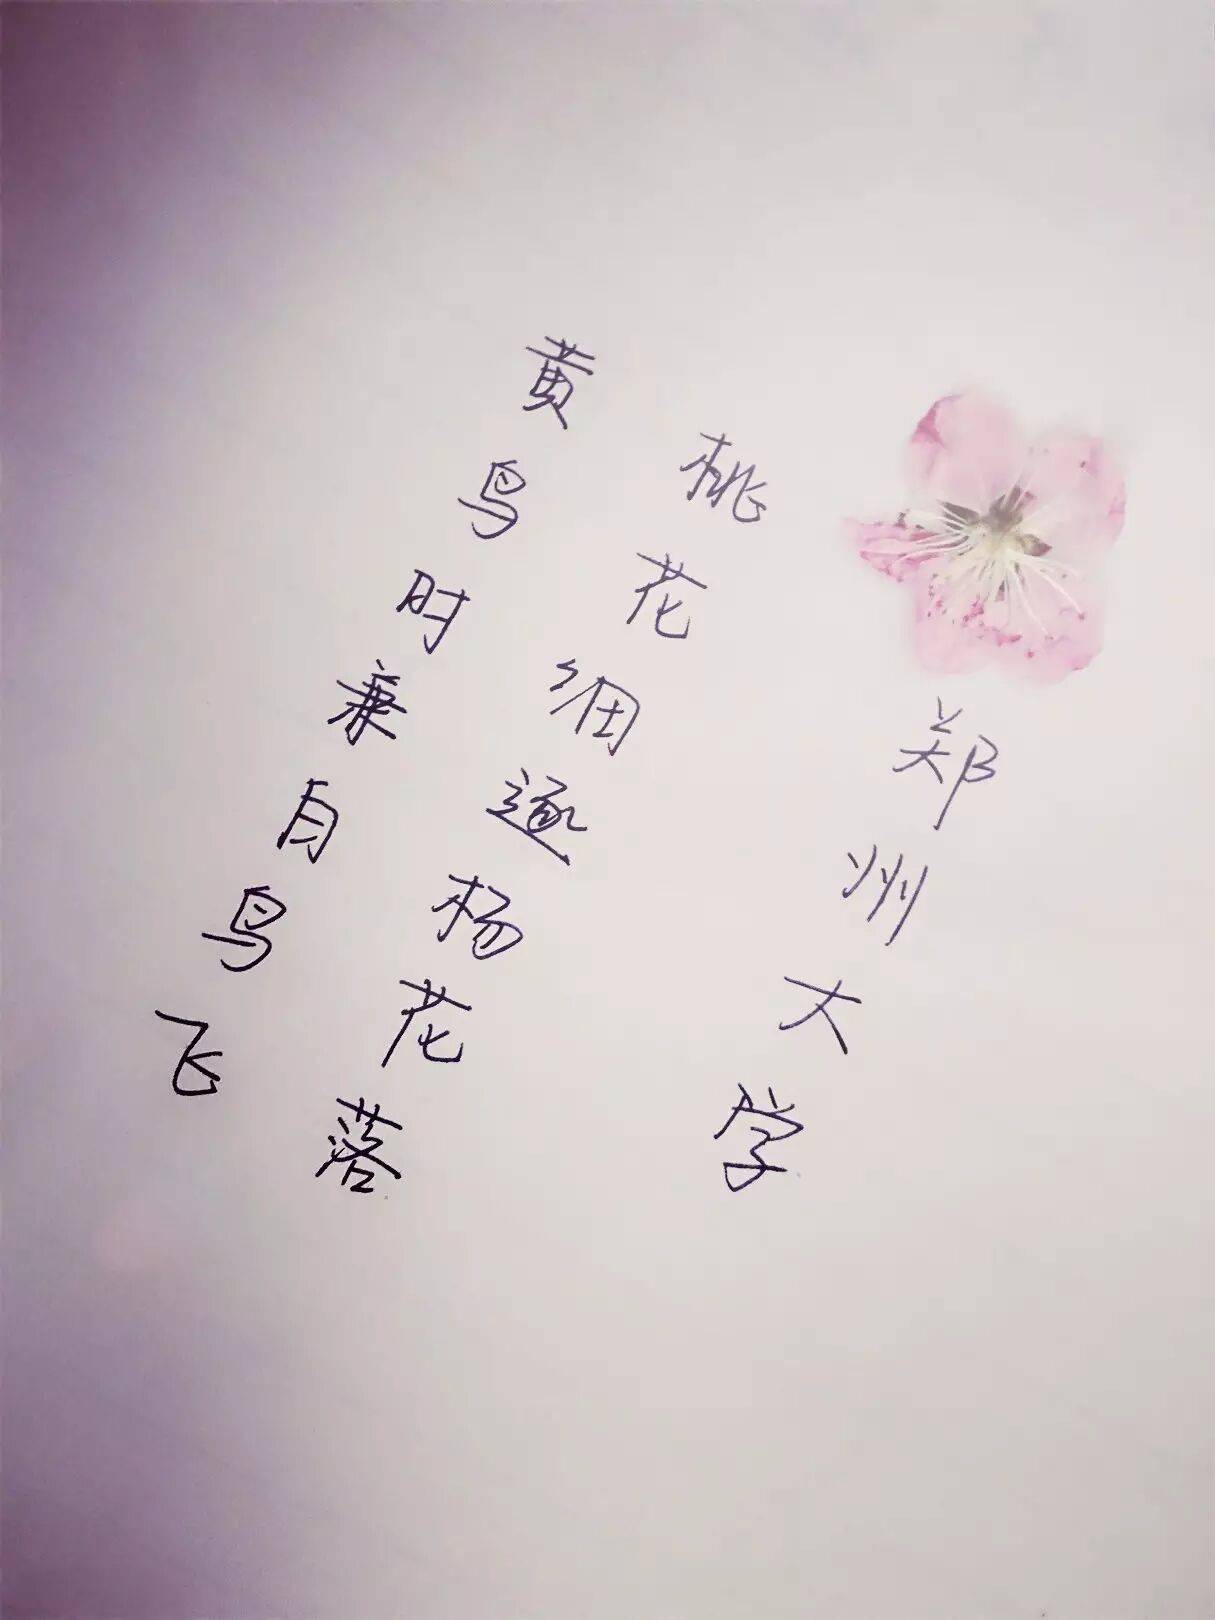 郑州大学
桃花细逐杨花落
黄鸟时兼白鸟飞